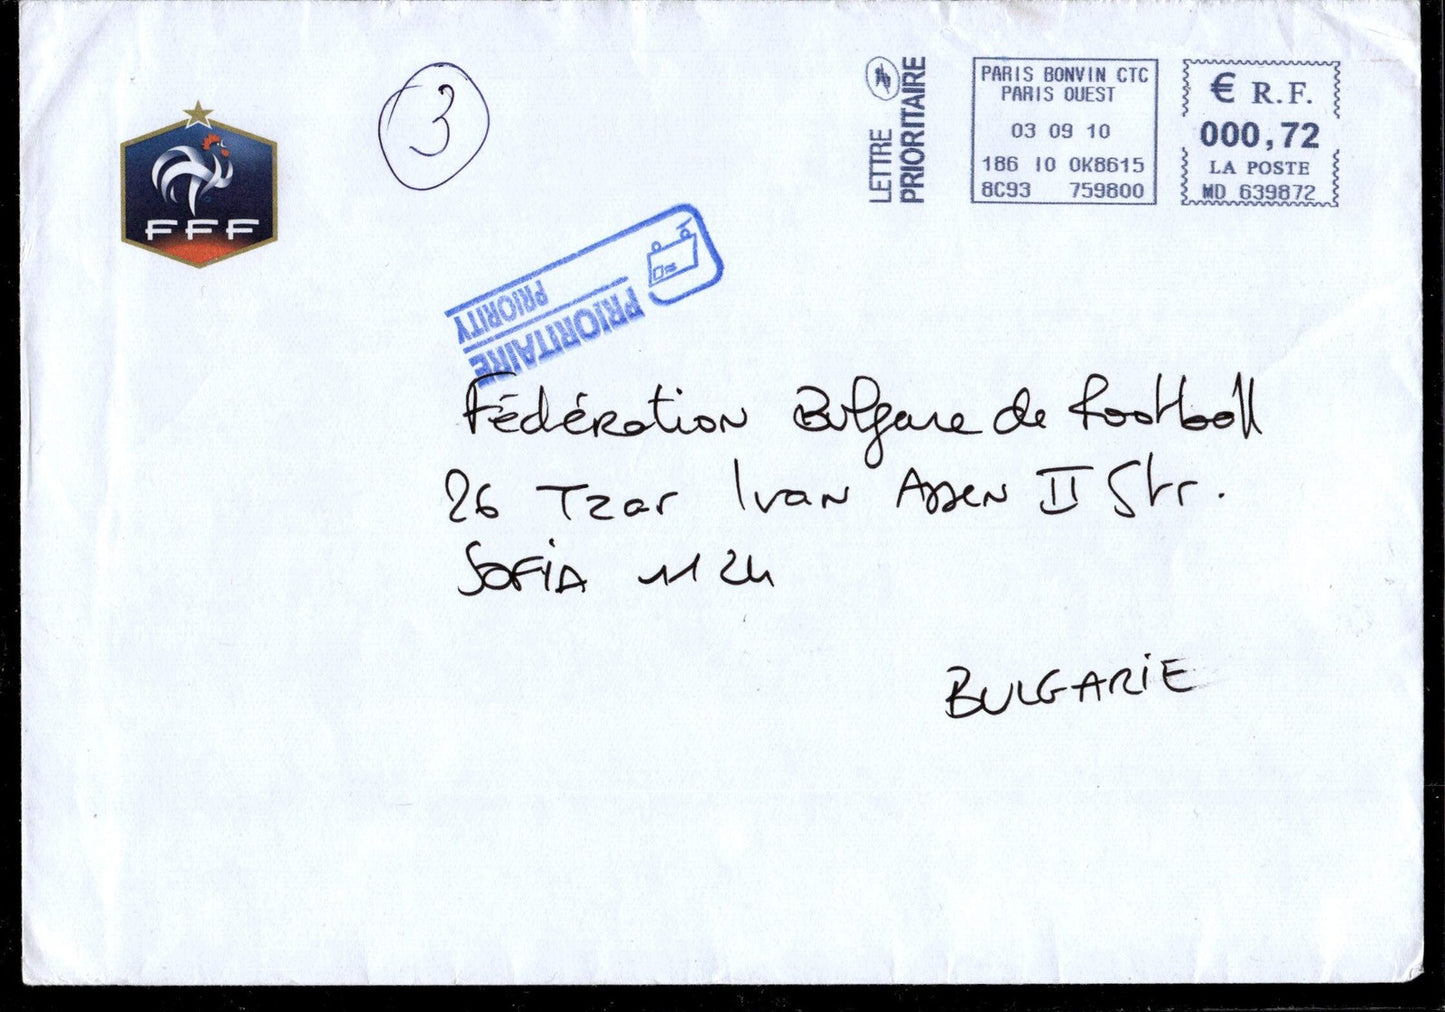 FFF
3
LETTRE
PRIORITAIRE
PARIS BONVIN CTC
PARIS OUEST
03 09 10
186 IO OK8615
8C93 759800
€ R.F.
000,72
LA POSTE
MD 639872
PRIORITAIRE
PRIORITY
Fédération Bulgare de Football
26 Tzar Ivan Assen II Str.
SOFIA 1124
BULGARIE